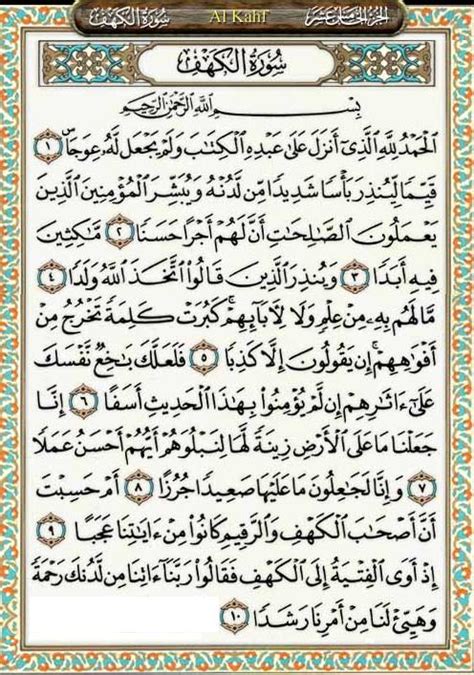 الجزء الخامس عشر Al Kahf سورة الكهف
سُورَةُ الكَهْفِ
بِسْمِ اللَّهِ الرَّحْمَٰنِ الرَّحِيمِ
الْحَمْدُ لِلَّهِ الَّذِي أَنزَلَ عَلَىٰ عَبْدِهِ الْكِتَابَ وَلَمْ يَجْعَل لَّهُ عِوَجًا ۜ ١
قَيِّمًا لِّيُنذِرَ بَأْسًا شَدِيدًا مِّن لَّدُنْهُ وَيُبَشِّرَ الْمُؤْمِنِينَ الَّذِينَ
يَعْمَلُونَ الصَّالِحَاتِ أَنَّ لَهُمْ أَجْرًا حَسَنًا ٢ مَّاكِثِينَ
فِيهِ أَبَدًا ٣ وَيُنذِرَ الَّذِينَ قَالُوا اتَّخَذَ اللَّهُ وَلَدًا ٤
مَّا لَهُم بِهِ مِنْ عِلْمٍ وَلَا لِآبَائِهِمْ ۚ كَبُرَتْ كَلِمَةً تَخْرُجُ مِنْ
أَفْوَاهِهِمْ ۚ إِن يَقُولُونَ إِلَّا كَذِبًا ٥ فَلَعَلَّكَ بَاخِعٌ نَّفْسَكَ
عَلَىٰ ءَاثَارِهِمْ إِن لَّمْ يُؤْمِنُوا بِهَٰذَا الْحَدِيثِ أَسَفًا ٦ إِنَّا
جَعَلْنَا مَا عَلَى الْأَرْضِ زِينَةً لَّهَا لِنَبْلُوَهُمْ أَيُّهُمْ أَحْسَنُ عَمَلًا
٧ وَإِنَّا لَجَاعِلُونَ مَا عَلَيْهَا صَعِيدًا جُرُزًا ٨ أَمْ حَسِبْتَ
أَنَّ أَصْحَابَ الْكَهْفِ وَالرَّقِيمِ كَانُوا مِنْ ءَايَاتِنَا عَجَبًا ٩
إِذْ أَوَى الْفِتْيَةُ إِلَى الْكَهْفِ فَقَالُوا رَبَّنَا ءَاتِنَا مِن لَّدُنكَ رَحْمَةً
وَهَيِّئْ لَنَا مِنْ أَمْرِنَا رَشَدًا ١٠